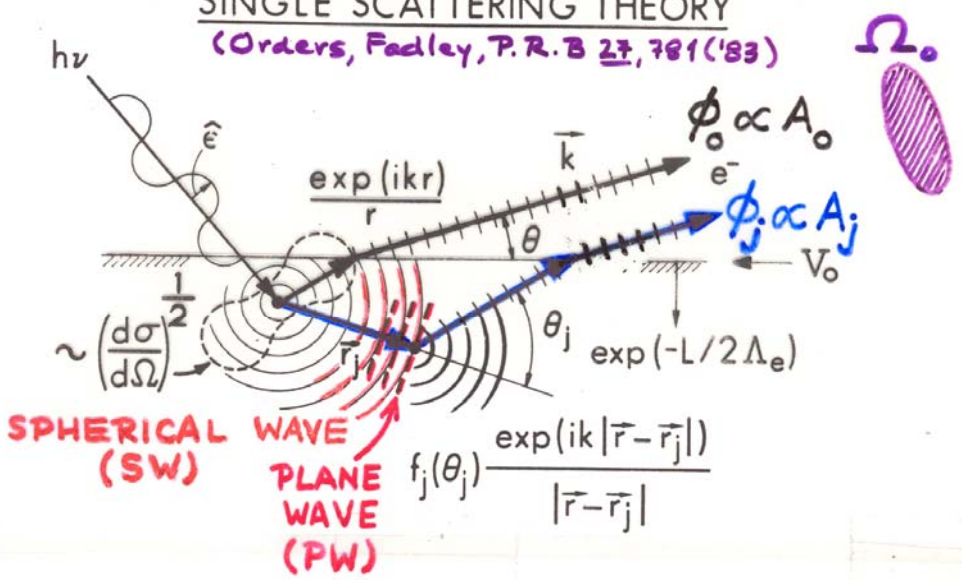 SINGLE SCATTERING THEORY
(Orders, Fadley, P.R.B 27, 781('83)
Ω₀
hν
ε̂
exp(ikr)
r
k⃗
ϕ₀ ∝ A₀
e⁻
ϕⱼ ∝ Aⱼ
θ
V₀
~ (dσ/dΩ)^1/2
r⃗ⱼ
θⱼ
exp(-L/2Λₑ)
SPHERICAL WAVE
(SW)
PLANE
WAVE
(PW)
fⱼ(θⱼ) exp(ik|r⃗-r⃗ⱼ|)
|r⃗-r⃗ⱼ|